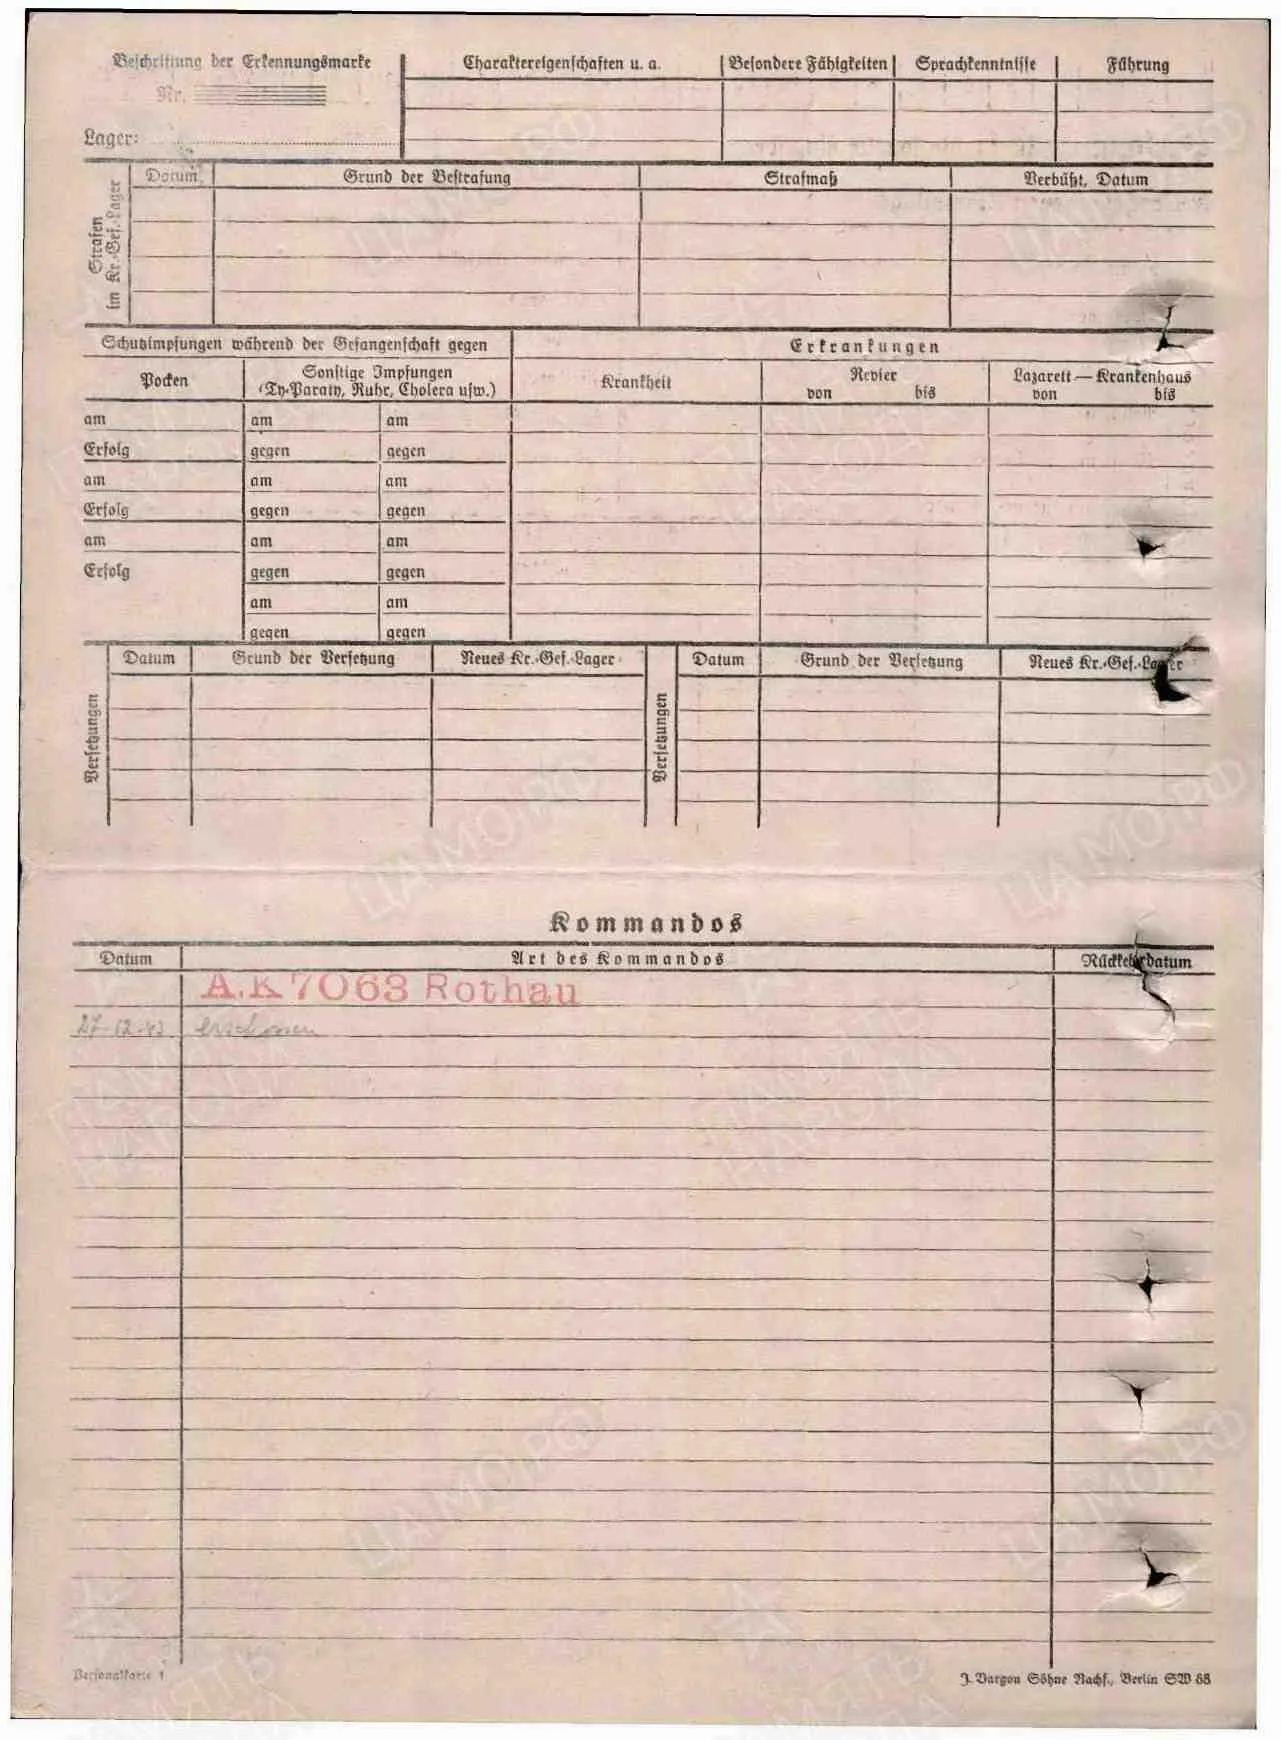 Beschriftung der Erkennungsmarke
Nr.
Lager:
Charaktereigenschaften u. a.
Besondere Fähigkeiten
Sprachkenntnisse
Führung
Strafen im Kr.-Gef.-Lager
Datum
Grund der Bestrafung
Strafmaß
Verbüßt, Datum
Schutzimpfungen während der Gefangenschaft gegen
Erkrankungen
Pocken
Sonstige Impfungen
(Ty-Paraty, Ruhr, Cholera usw.)
Krankheit
Revier
von bis
Lazarett — Krankenhaus
von bis
am am am
Erfolg gegen gegen
am am am
Erfolg gegen gegen
am am am
Erfolg gegen gegen
am am
gegen gegen
Versetzungen
Datum
Grund der Versetzung
Neues Kr.-Gef.-Lager
Versetzungen
Datum
Grund der Versetzung
Neues Kr.-Gef.-Lager
Kommandos
Datum
Art des Kommandos
Rückkehrdatum
A.K 7063 Rothau
27-12-43 erschossen
Personalkarte 1
J. Bargou Söhne Nachf., Berlin SW 68
ЦАМО РФ
ПАМЯТЬ НАРОДА